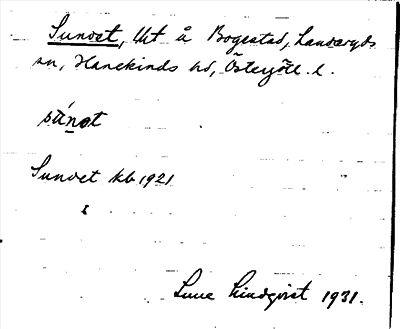 Sunvet, lht å Bogestad, Landeryds
sn, Hanekinds hd, Östergötl. l.
súnət
Sunvet kb 1921
Sune Lindqvist 1931.